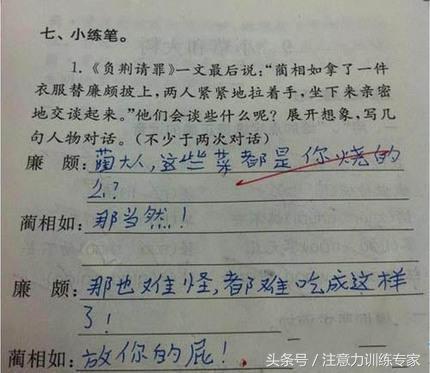 七、小练笔。
1.《负荆请罪》一文最后说:“蔺相如拿了一件
衣服替廉颇披上,两人紧紧地拉着手,坐下来亲密
地交谈起来。”他们会谈些什么呢?展开想象,写几
句人物对话。(不少于两次对话)
廉 颇:蔺大人,这些菜都是你烧的
么?
蔺相如:那当然!
廉 颇:那也难怪,都难吃成这样
了!
蔺相如:放你的屁!
头条号/注意力训练专家